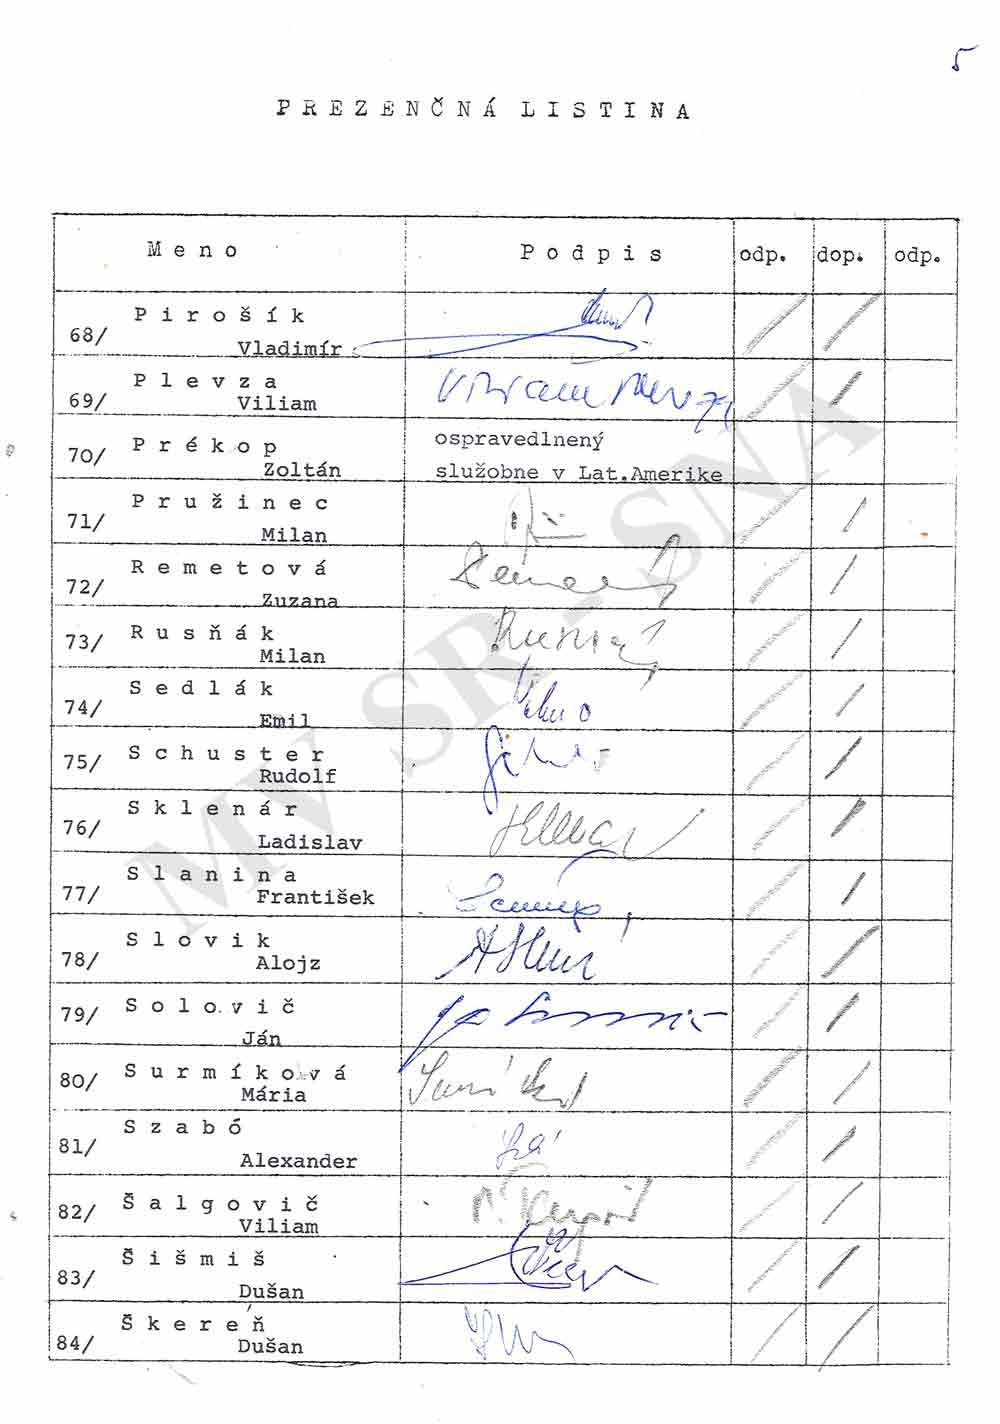 5
PREZENČNÁ LISTINA
Meno Podpis odp. dop. odp.
68/ Pirošík
Vladimír
69/ Plevza
Viliam
Viliam Plevza
70/ Prékop ospravedlnený
Zoltán služobne v Lat.Amerike
71/ Pružinec
Milan
72/ Remetová
Zuzana
73/ Rusňák
Milan
74/ Sedlák
Emil
75/ Schuster
Rudolf
76/ Sklenár
Ladislav
77/ Slanina
František
78/ Slovik
Alojz
79/ Solovič
Ján
80/ Surmíková
Mária
81/ Szabó
Alexander
82/ Šalgovič
Viliam
83/ Šišmiš
Dušan
84/ Škereň
Dušan
MV SR - SNA